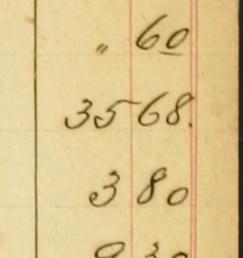 „ 60
35 68.
3 80